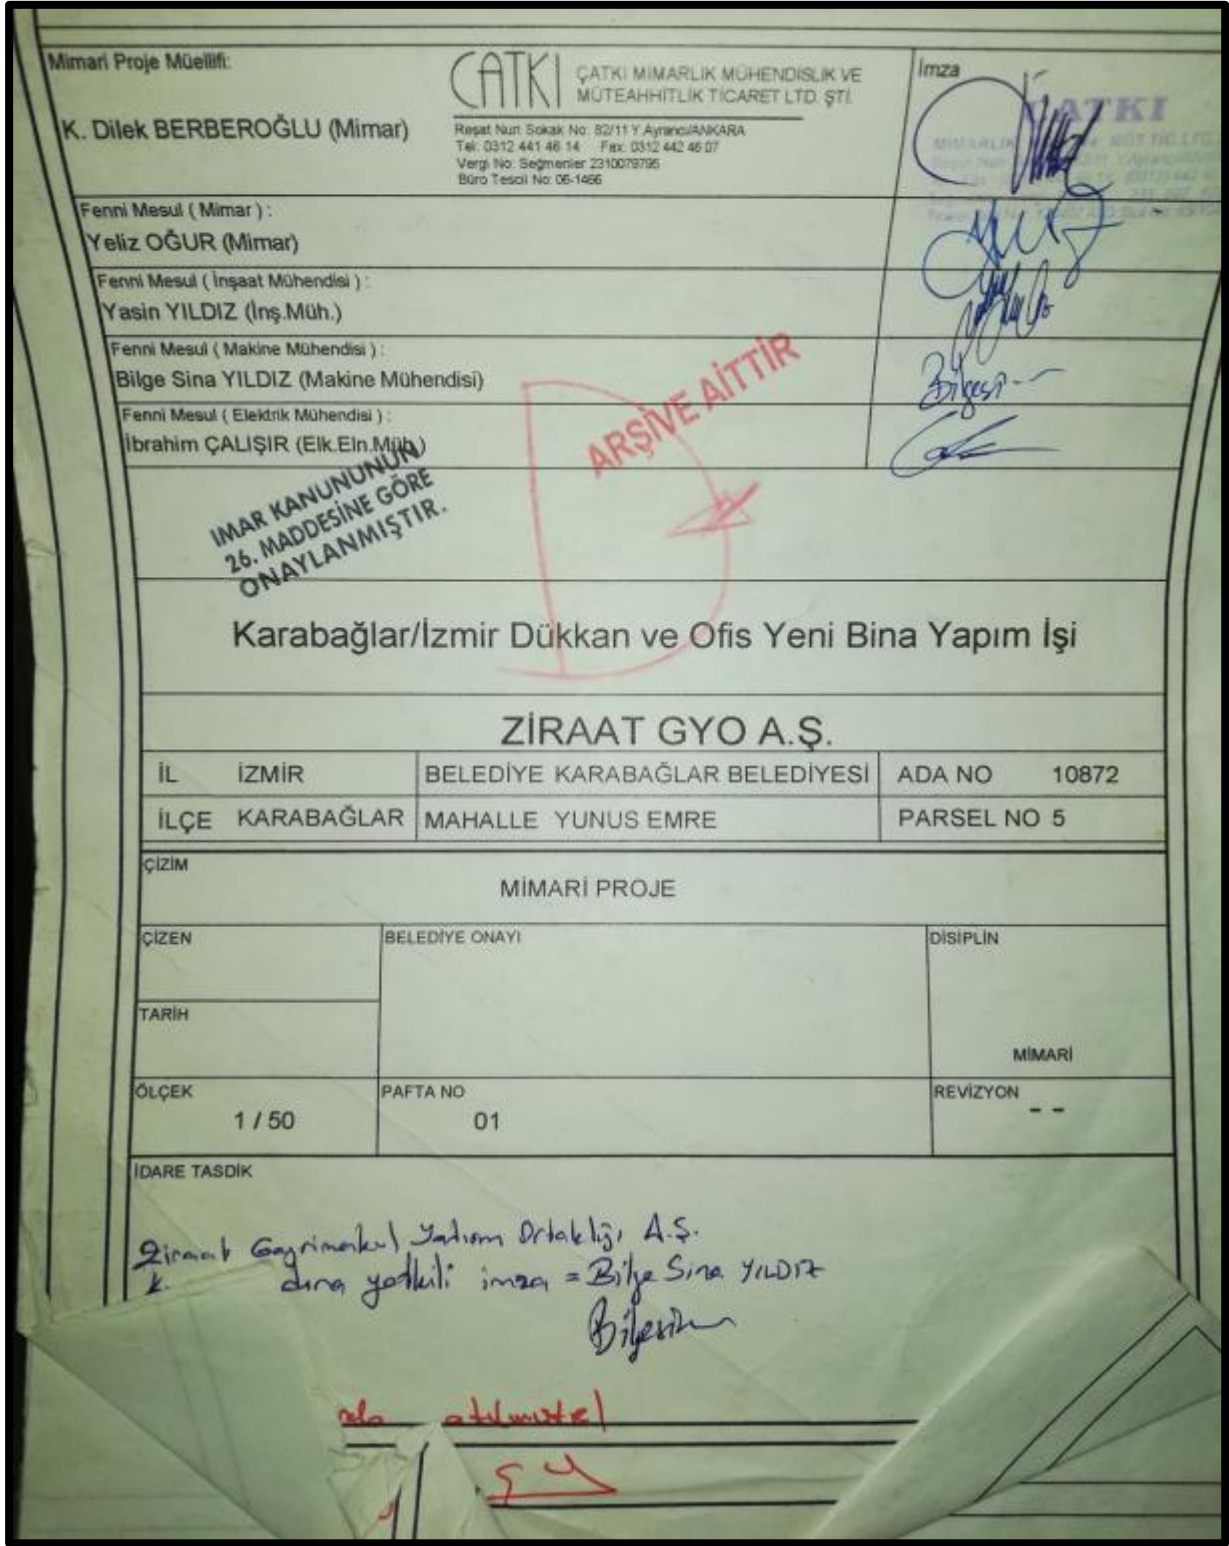 Mimari Proje Müellifi:
K. Dilek BERBEROĞLU (Mimar)
ÇATKI
ÇATKI MİMARLIK MÜHENDİSLİK VE
MÜTEAHHİTLİK TİCARET LTD. ŞTİ.
Reşat Nuri Sokak No: 82/11 Y.Ayrancı/ANKARA
Tel: 0312 441 46 14 Fax: 0312 442 46 07
Vergi No: Seğmenler 2310079795
Büro Tescil No: 06-1466
İmza
ÇATKI
Fenni Mesul ( Mimar ) :
Yeliz OĞUR (Mimar)
Fenni Mesul ( İnşaat Mühendisi ) :
Yasin YILDIZ (İnş.Müh.)
Fenni Mesul ( Makine Mühendisi ) :
Bilge Sina YILDIZ (Makine Mühendisi)
Fenni Mesul ( Elektrik Mühendisi ) :
İbrahim ÇALIŞIR (Elk.Eln.Müh.)
ARŞİVE AİTTİR
IMAR KANUNUNUN
26. MADDESİNE GÖRE
ONAYLANMIŞTIR.
Karabağlar/İzmir Dükkan ve Ofis Yeni Bina Yapım İşi
ZİRAAT GYO A.Ş.
İL İZMİR BELEDİYE KARABAĞLAR BELEDİYESİ ADA NO 10872
İLÇE KARABAĞLAR MAHALLE YUNUS EMRE PARSEL NO 5
ÇİZİM
MİMARİ PROJE
ÇİZEN BELEDİYE ONAYI DİSİPLİN
TARİH
MİMARİ
ÖLÇEK PAFTA NO REVİZYON
1 / 50 01 - -
İDARE TASDİK
Ziraat Gayrimenkul Yatırım Ortaklığı A.Ş.
yetkili imza = Bilge Sina YILDIZ